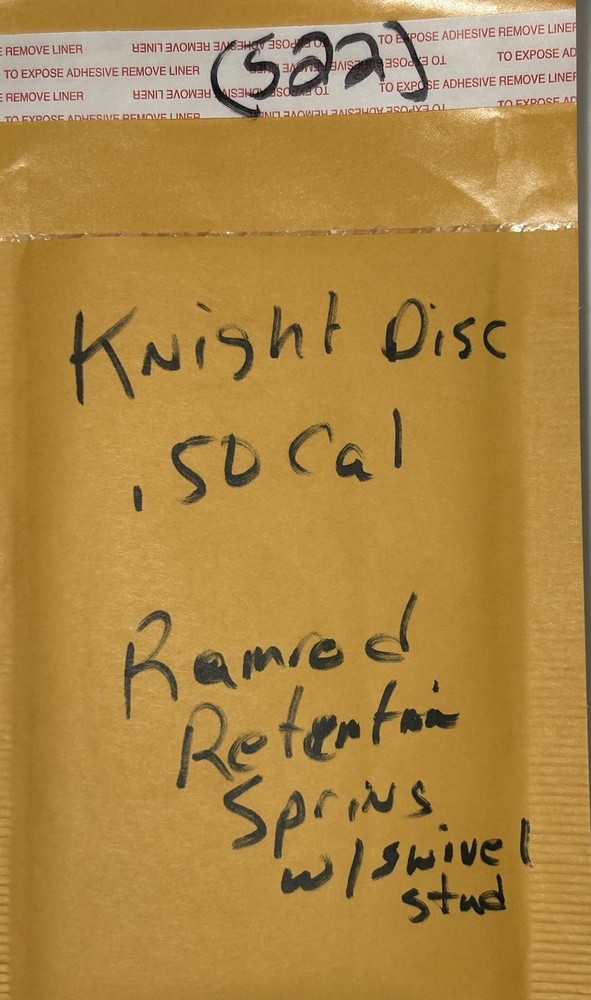 E REMOVE LINER TO EXPOSE ADHESIVE REMOVE LINER TO EXPOSE ADHESIVE REMOVE LINER
TO EXPOSE ADHESIVE REMOVE LINER TO EXPOSE AD
(522)
E REMOVE LINER TO EXPOSE ADHESIVE REMOVE LINER TO EXPOSE ADHESIVE REMOVE LINER
TO EXPOSE ADHESIVE REMOVE LINER TO EXPOSE AD
Knight Disc
.50 Cal
Ramrod
Retention
Spring
w/swivel
stud